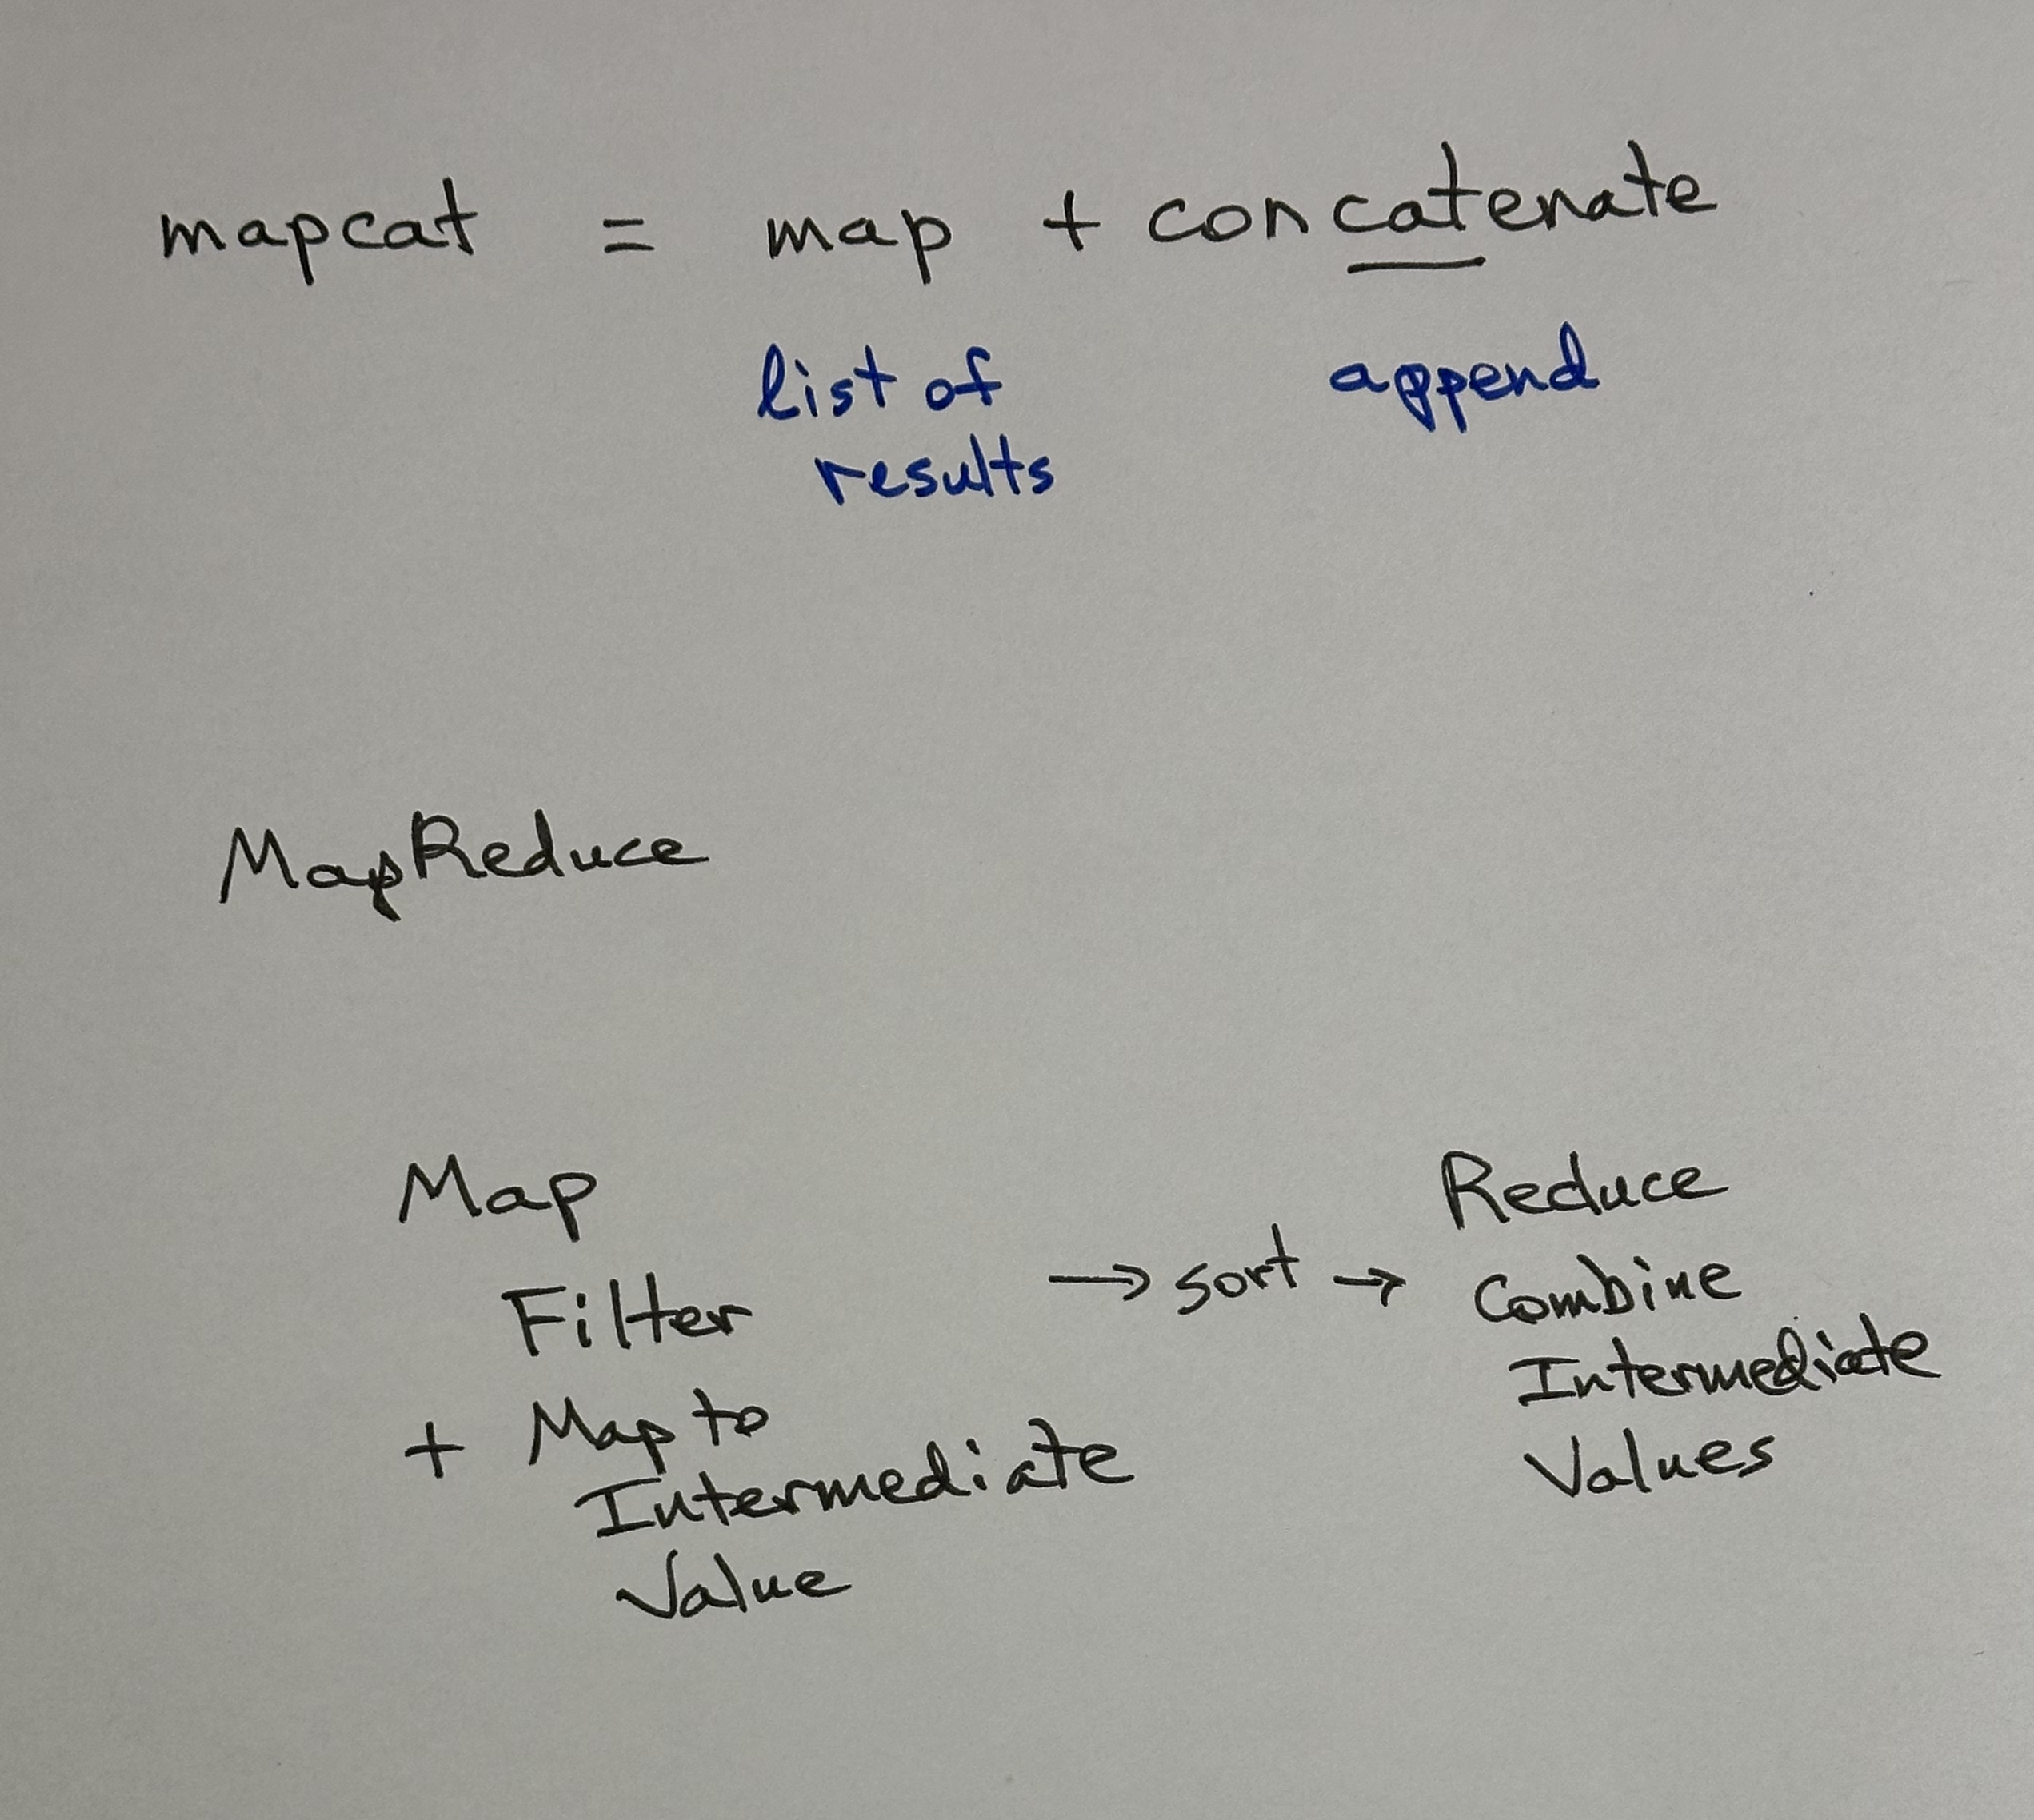 mapcat = map + concatenate
list of append
results
MapReduce
Map
Filter
+ Map to
Intermediate
Value
→ sort →
Reduce
Combine
Intermediate
Values